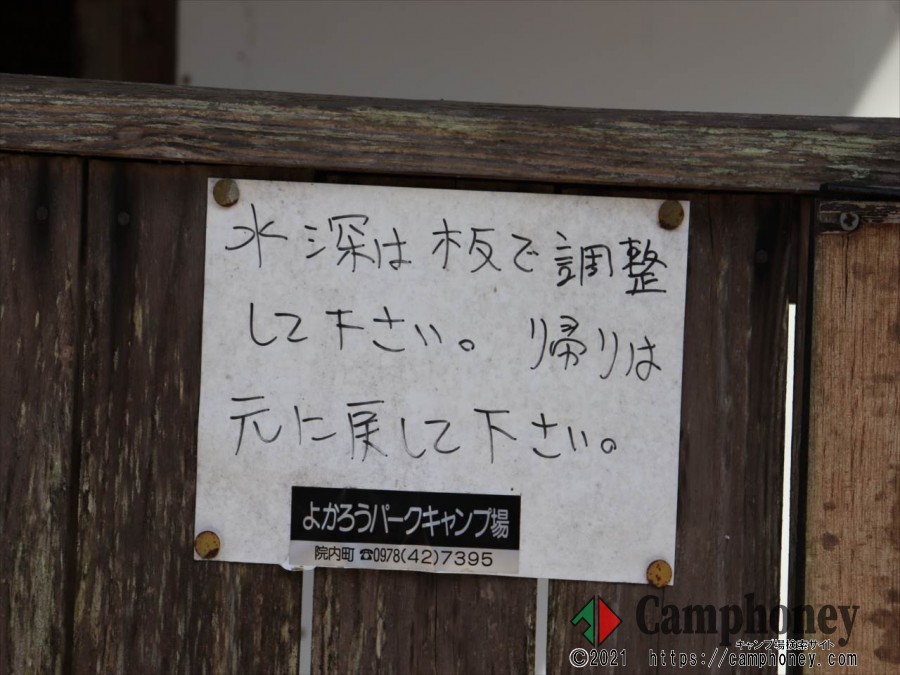 水深は板で調整
して下さい。帰りは
元に戻して下さい。
よかろうパークキャンプ場
院内町 ☎0978(42)7395
Camphoney
キャンプ場検索サイト
©2021 https://camphoney.com